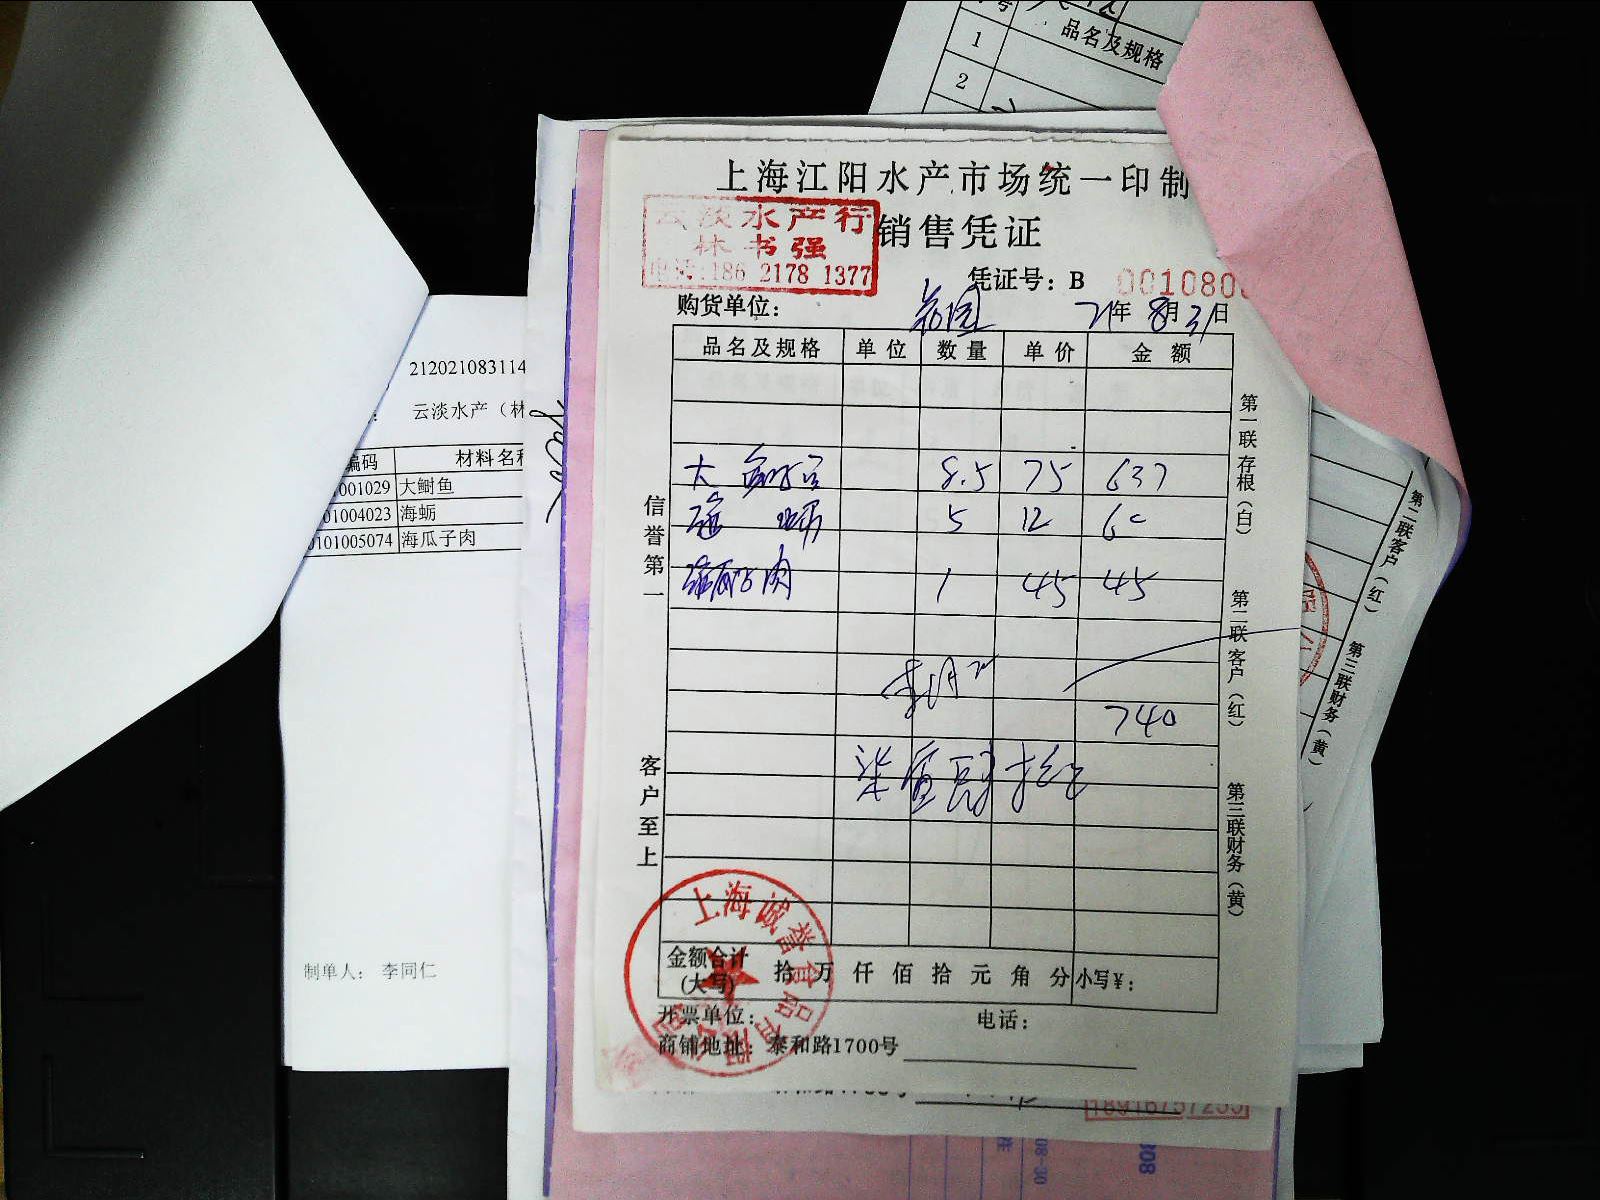 号
品名及规格
1
2
上海江阳水产市场统一印制
销售凭证
云淡水产行
林书强
电话:186 2178 1377
凭证号: B 001080
购货单位:
21年8月31日
品名及规格 单位 数量 单价 金额
大鲥鱼 8.5 75 637
海蛎 5 12 60
海瓜子肉 1 45 45
740
信誉第一
客户至上
第一联存根(白)
第二联客户(红)
第三联财务(黄)
金额合计
(大写)
拾 万 仟 佰 拾 元 角 分 小写¥:
开票单位:
电话:
商铺地址: 泰和路1700号
上海诚誉食品有限公司
212021083114
云淡水产(林
编码 材料名称
001029 大鲥鱼
01004023 海蛎
0101005074 海瓜子肉
制单人: 李同仁
第二联客户(红)
第三联财务(黄)
18916757255
08-30
808